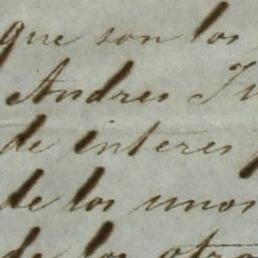 que son los
Andres
de interes
de los unos
de los otro